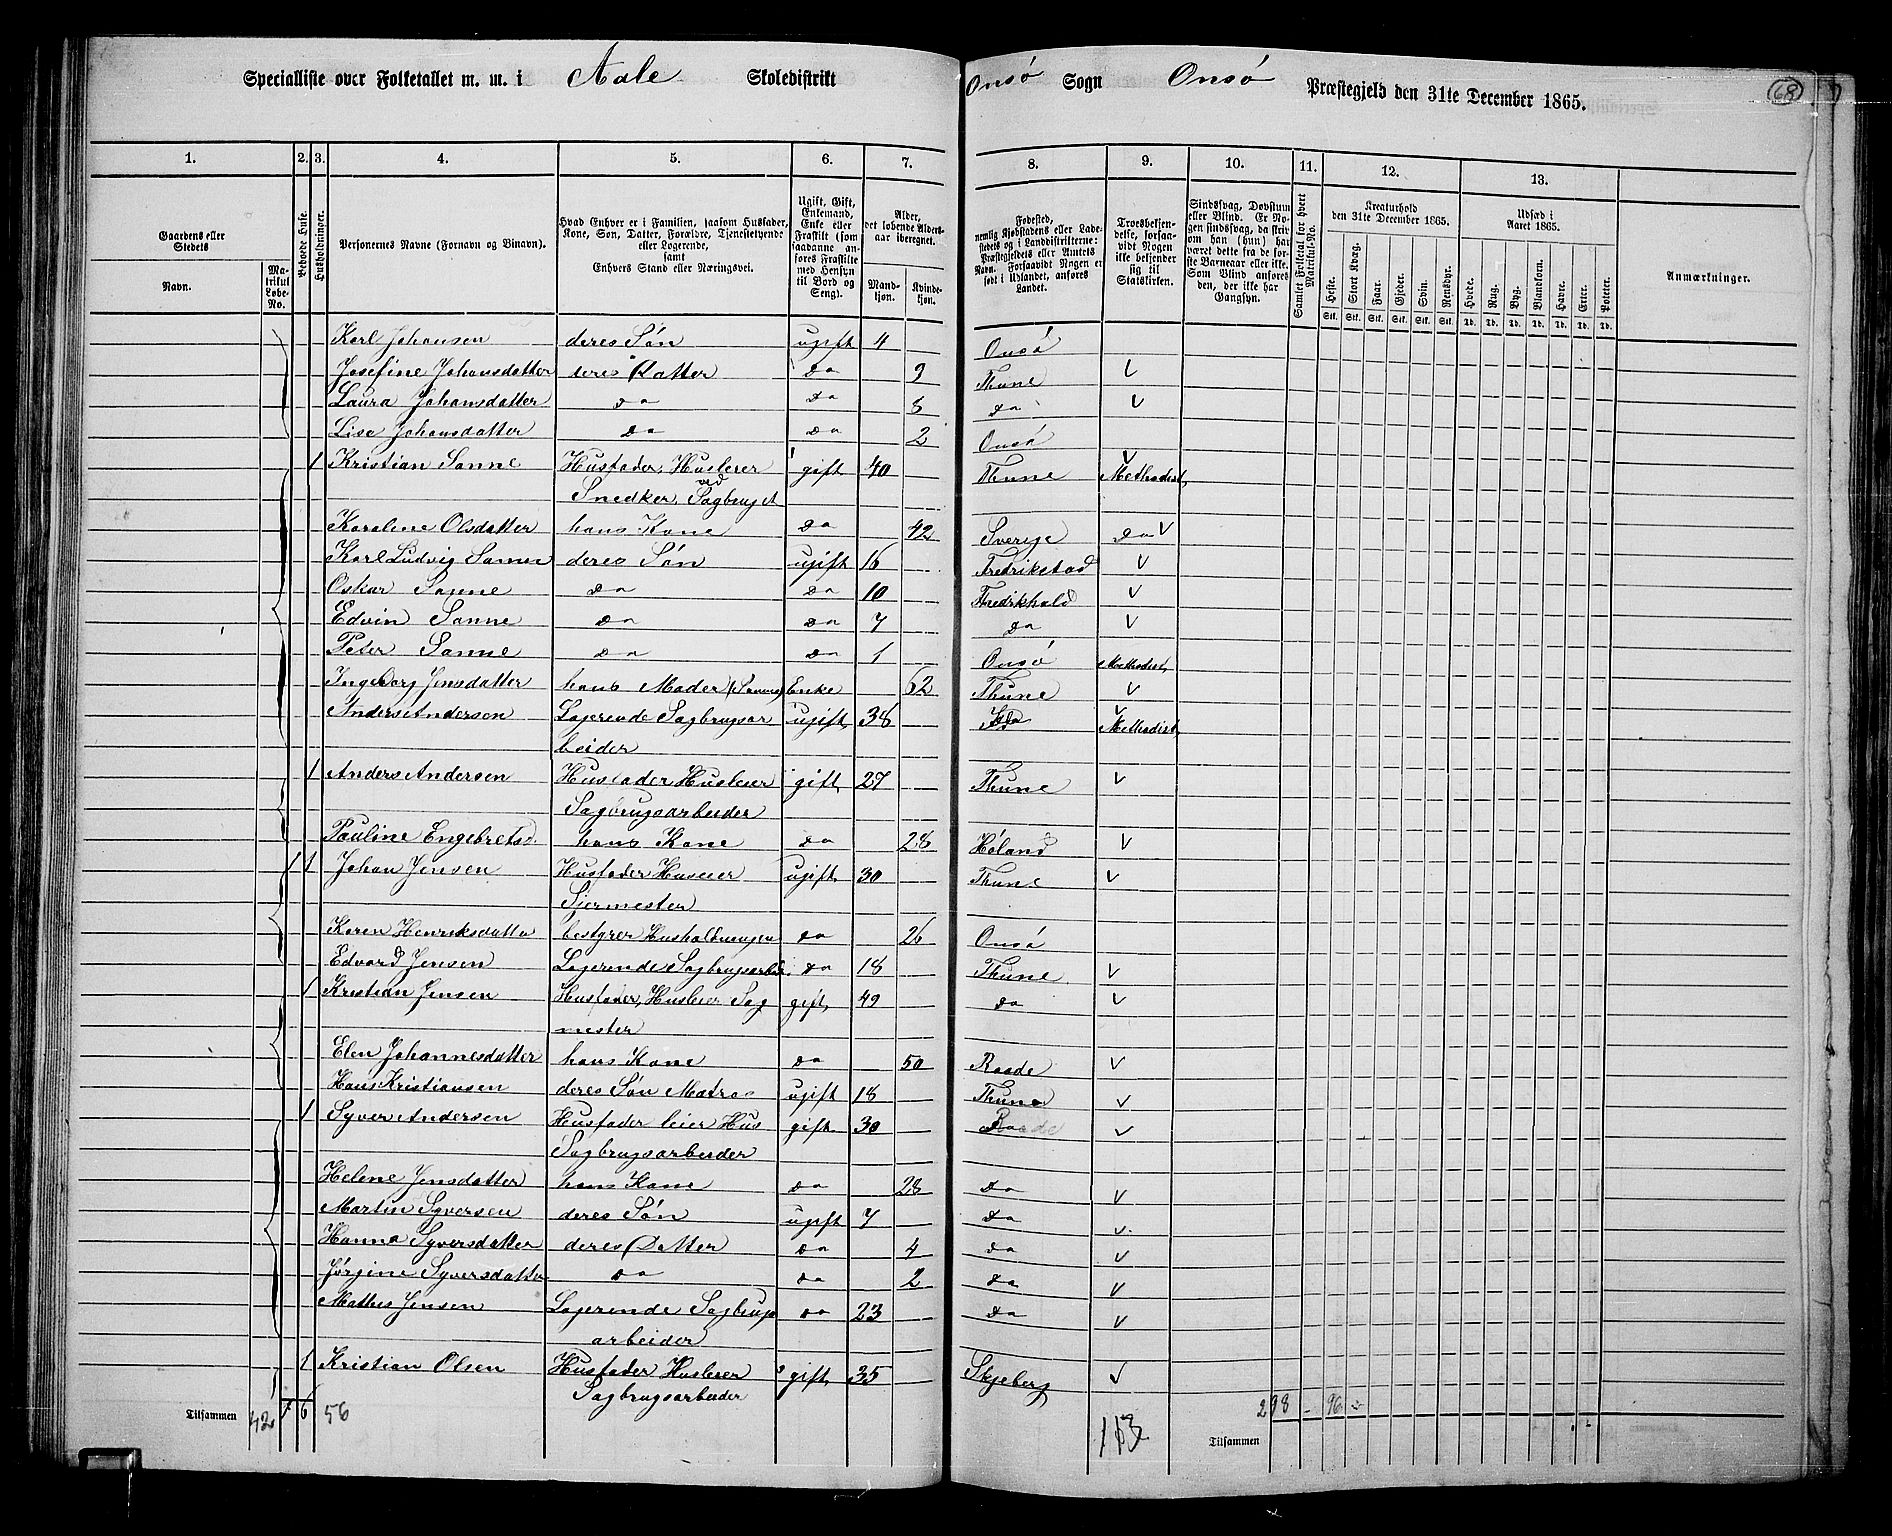 Specialliste over Folketallet m. m. i Aale Skoledistrikt Onsö Sogn Onsö Præstegjeld den 31te December 1865. 68
1. 2. 3. 4. 5. 6. 7. 8. 9. 10. 11. 12. 13.
Gaardens eller Stedets Navn. Matrikul Løbe-No. Bebodde Huse. Husholdninger. Personernes Navne (Fornavn og Binavn).
Hvad Enhver er i Familien, saasom Husfader, Kone, Søn, Datter, Forældre, Tjenestetyende eller Logerende, samt Enhvers Stand eller Næringsvei.
Ugift, Gift, Enkemand, Enke eller Fraskilt (som saadanne anføres Fraskilte med Hensyn til Bord og Seng).
Alder, det løbende Aldersaar iberegnet. Mandkjøn. Kvindekjøn.
Fødested, nemlig Kjøbstadens eller Ladestedets og i Landdistrikterne: Præstegjeldets eller Amtets Navn. Forsaavidt Nogen er født i Udlandet, anføres Landet.
Troesbekjendelse, forsaavidt Nogen ikke bekjender sig til Statskirken.
Sindssvag, Døvstum eller Blind. Er Nogen sindssvag, da skrives om han (hun) har været dette fra de første Barneaar eller ikke. Som Blind anføres den, der ikke har Gangsyn.
Samlet Folketal for hvert Matrikul-No.
Kreaturhold den 31te December 1865. Heste. Stort Kvæg. Faar. Gjeder. Svin. Rensdyr.
Udsæd i Aaret 1865. Hvede. Rug. Byg. Blandkorn. Havre. Erter. Poteter.
Anmærkninger.
Stk. Stk. Stk. Stk. Stk. Stk. Td. Td. Td. Td. Td. Td. Td.
Karl Johansen deres Søn ugift 4 Onsö
Josefine Johansdatter deres Datter Do 9 Thune
Laura Johansdatter Do Do 8 Do
Lise Johansdatter Do Do 2 Onsö
1 Kristian Sanne Husfader, Husleier gift 40 Thune Methodist
Snedker ved Sagbruget
Karoline Olsdatter hans Kone Do 42 Sverige Do
Karl Ludvig Sanne deres Søn ugift 16 Fredrikstad
Oskar Sanne Do Do 10 Fredrikhald
Edvin Sanne Do Do 7 Do
Peter Sanne Do Do 1 Onsö Methodist
Ingeborg Jensdatter hans Moder Enke 62 Thune
Anders Andersen Logerende Sagbrugsar ugift 38 Do Methodist
beider
1 Anders Andersen Husfader Husleier gift 27 Thune
Sagbrugsarbeider
Pauline Engebretsd. hans Kone Do 28 Höland
1 1 Johan Jensen Husfader Huseier ugift 30 Thune
Karen Henriksdatter bestyrer Husholdningen Do 26 Onsö
Edvard Jensen Logerende Sagbrugsarbei. Do 18 Thune
1 Kristian Jensen Husfader, Husleier Sag gift 49 Do
mester
Elen Johannesdatter hans Kone Do 50 Raade
Hans Kristiansen deres Søn Matros ugift 18 Thune
1 Syver Andersen Husfader leier Hus gift 30 Raade
Sagbrugsarbeider
Helene Jensdatter hans Kone Do 28 Do
Martin Syversen deres Søn ugift 7 Do
Hanna Syversdatter deres Datter Do 4 Do
Jørgine Syversdatter Do Do 2 Do
Mathis Jensen Logerende Sagbrugs Do 23 Do
arbeider
1 Kristian Olsen Husfader Husleier gift 35 Skjeberg
Sagbrugsarbeider
Tilsammen 42 1 6 56 113 Tilsammen 298 96